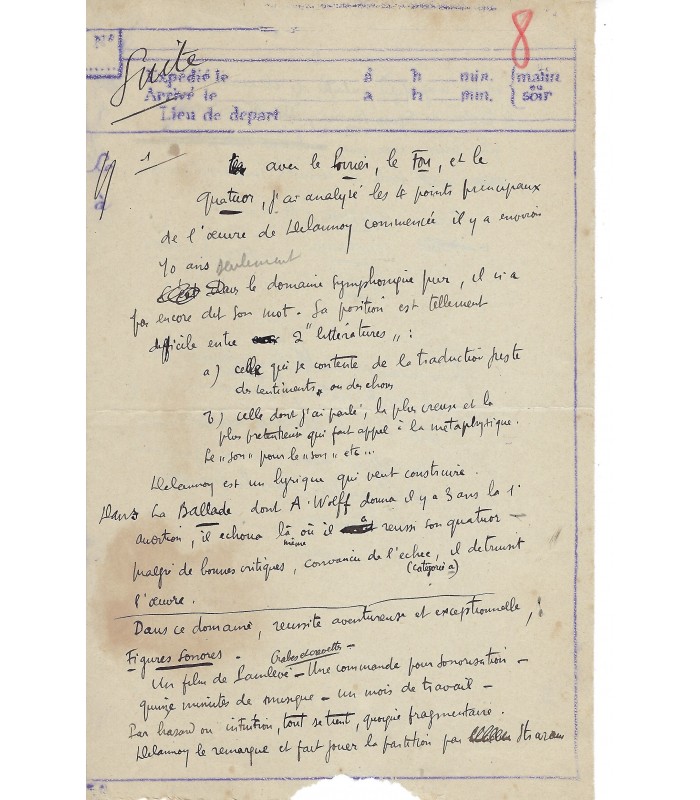 8
Nº
Suite
Expédié le à h min. (matin
ou
Arrivé le a h mm. (soir
Lieu de depart
1
avec le , le Fou, et le
quatuor, j'ai analysé les 4 points principaux
de l'œuvre de Delannoy commencée il y a environ
10 ans seulement
Dans le domaine symphonique pur, il n'a
pas encore dit son mot. Sa position est tellement
difficile entre 2 "littératures":
a) celle qui se contente de la traduction juste
des sentiments, ou des choses
b) celle dont j'ai parlé, la plus creuse et la
plus prétentieuse qui fait appel à la métaphysique.
Le "son" pour le "son" etc...
Delannoy est un lyrique qui veut construire.
Dans La Ballade dont A. Wolff donna il y a 3 ans la 1e
audition, il échoua là où il a réussi son quatuor –
même
malgré de bonnes critiques, convaincu de l'échec, il détruisit
(catégorie a)
l'œuvre.
Dans ce domaine, réussite aventureuse et exceptionnelle,
Figures Sonores – Crabes et crevettes –
Un film de Painlevé – Une commande pour sonorisation –
quinze minutes de musique – un mois de travail –
Par hasard ou intuition, tout se tient, quoique fragmentaire.
Delannoy le remarque et fait jouer la partition par Straram